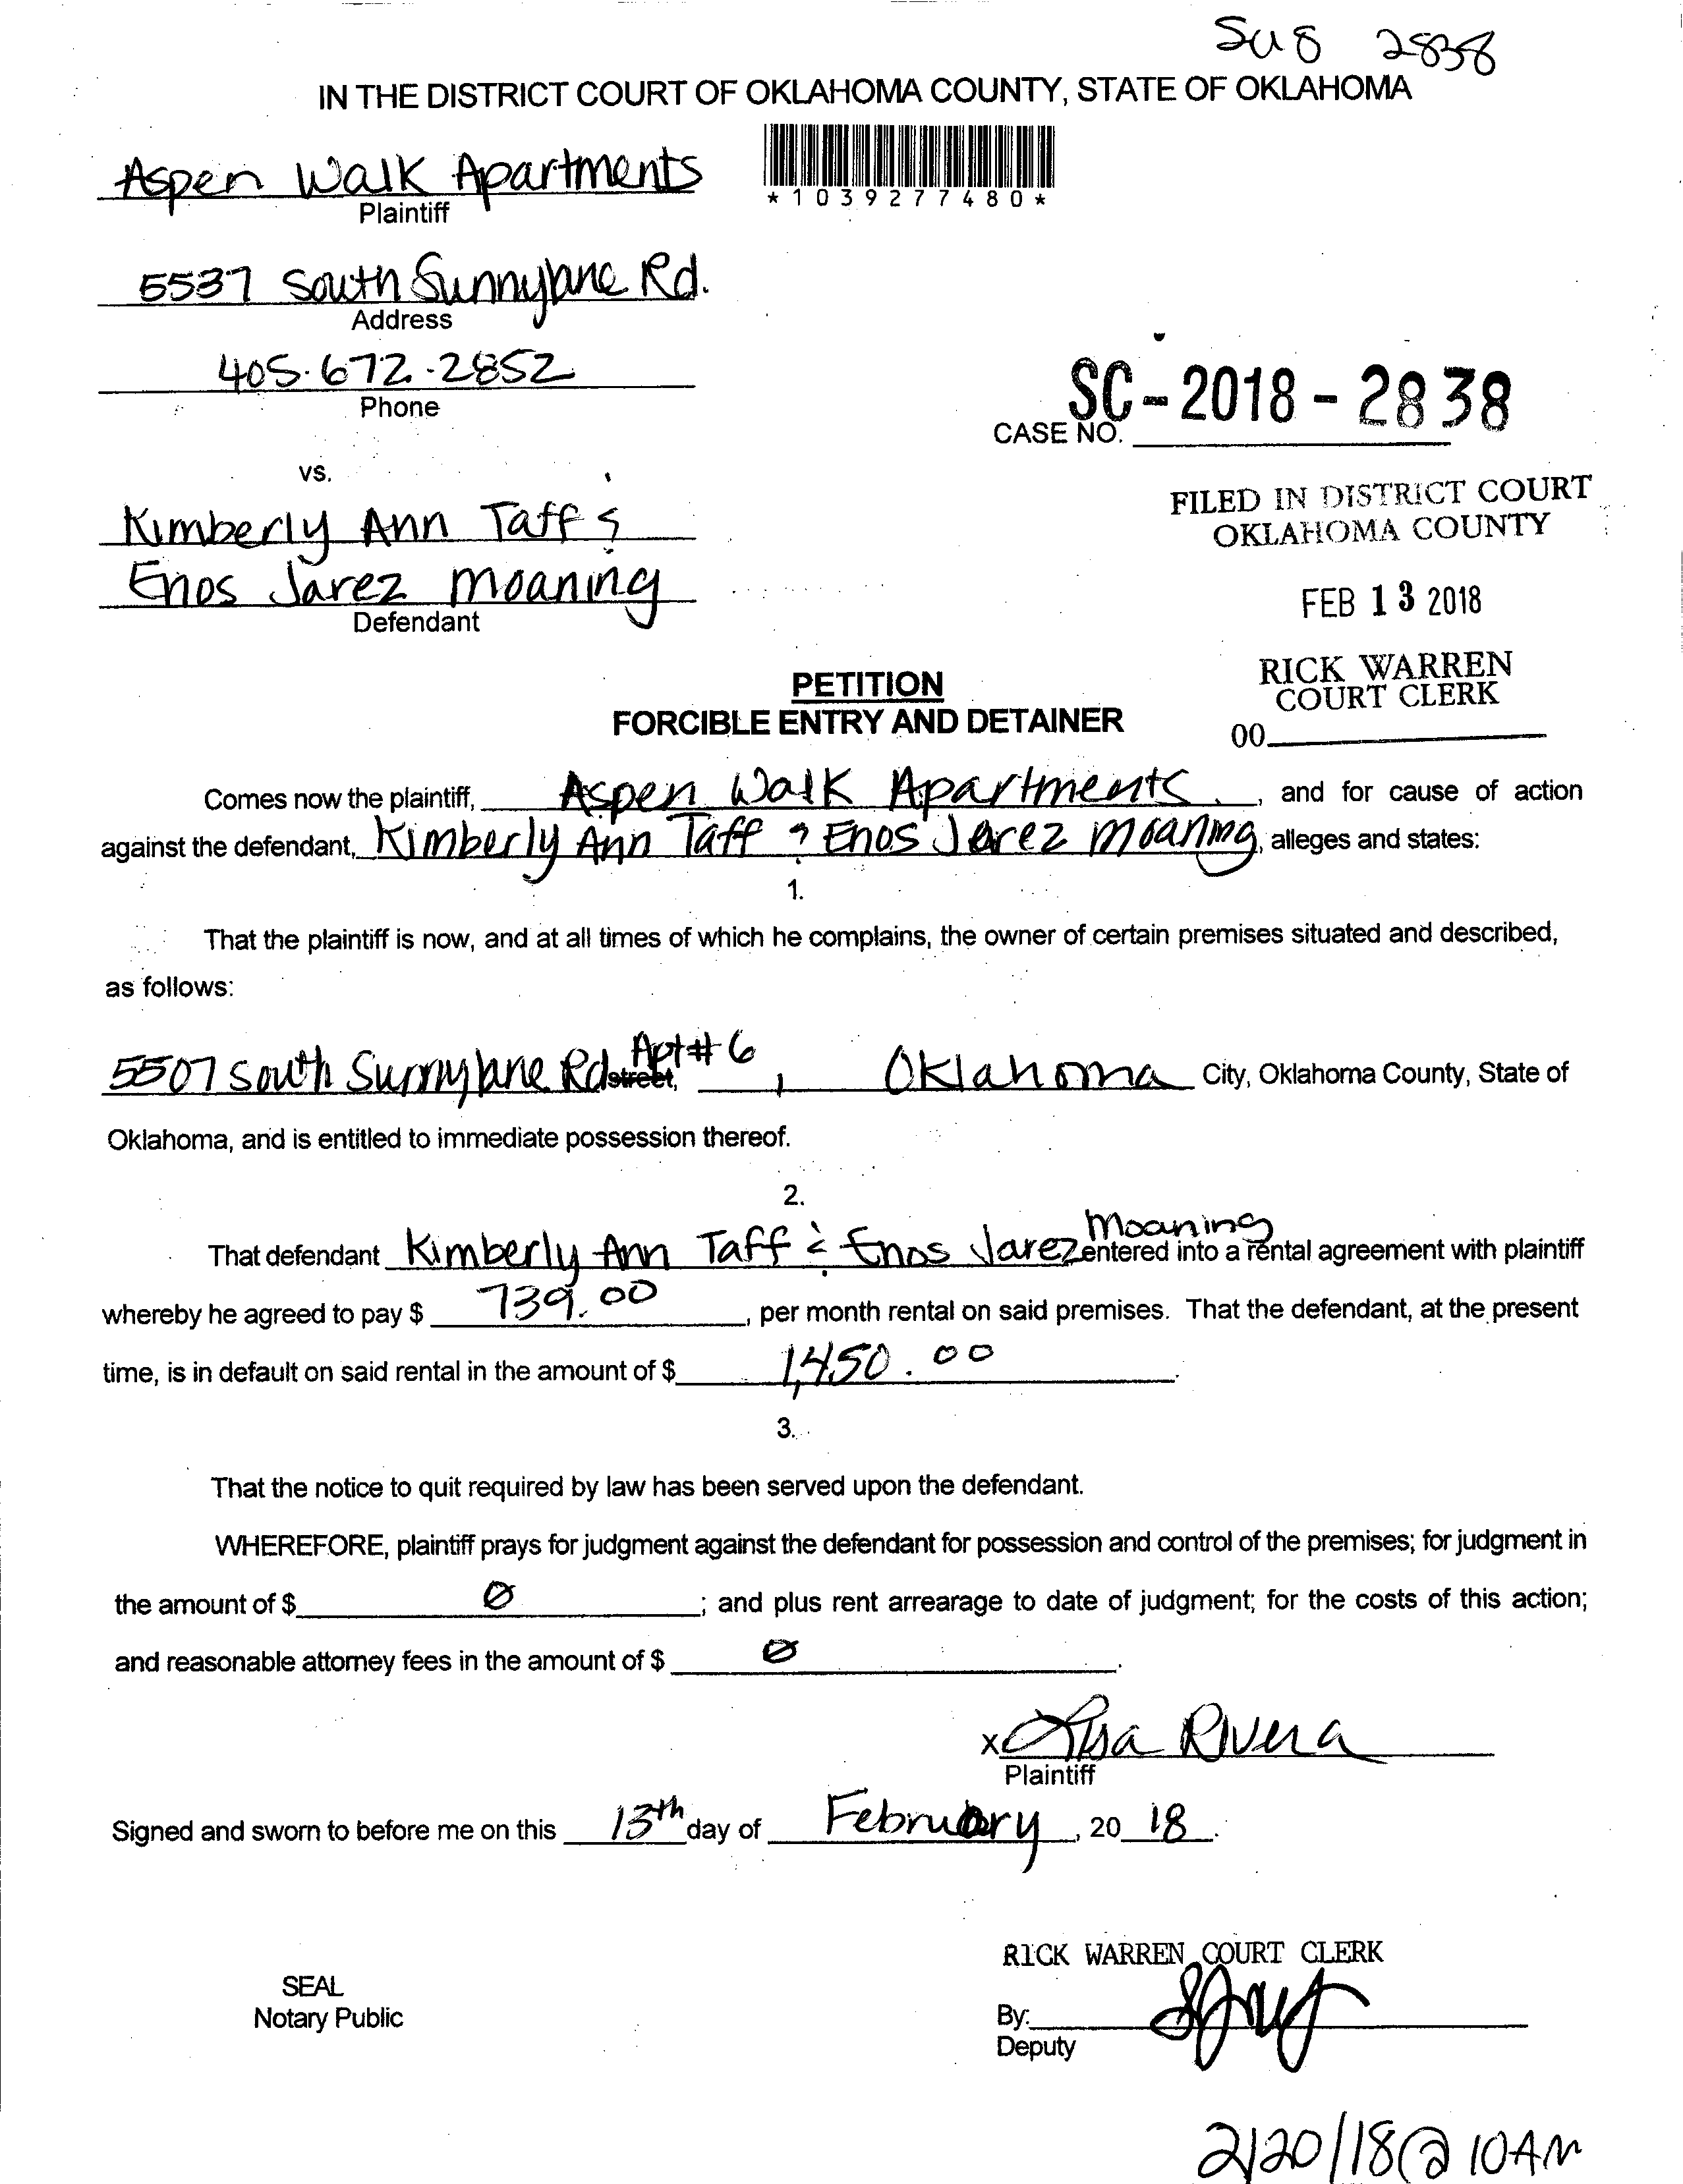 Su8 2838
IN THE DISTRICT COURT OF OKLAHOMA COUNTY, STATE OF OKLAHOMA
Aspen Walk Apartments
Plaintiff
*1039277480*
5537 South Sunnylane Rd.
Address
405.672.2852
Phone
SC-2018-2838
CASE NO.
vs.
Kimberly Ann Taff &
Enos Jarez Moaning
Defendant
FILED IN DISTRICT COURT
OKLAHOMA COUNTY
FEB 13 2018
RICK WARREN
COURT CLERK
00
PETITION
FORCIBLE ENTRY AND DETAINER
Comes now the plaintiff, Aspen Walk Apartments, and for cause of action
against the defendant, Kimberly Ann Taff & Enos Jarez Moaning, alleges and states:
1.
That the plaintiff is now, and at all times of which he complains, the owner of certain premises situated and described,
as follows:
5507 South Sunnylane Rd street, Apt# 6, Oklahoma City, Oklahoma County, State of
Oklahoma, and is entitled to immediate possession thereof.
2.
That defendant Kimberly Ann Taff & Enos Jarez Moaning entered into a rental agreement with plaintiff
whereby he agreed to pay $ 739.00, per month rental on said premises. That the defendant, at the present
time, is in default on said rental in the amount of $ 1,450.00.
3.
That the notice to quit required by law has been served upon the defendant.
WHEREFORE, plaintiff prays for judgment against the defendant for possession and control of the premises; for judgment in
the amount of $ Ø; and plus rent arrearage to date of judgment; for the costs of this action;
and reasonable attorney fees in the amount of $ Ø.
x Lisa Rivera
Plaintiff
Signed and sworn to before me on this 13th day of February, 2018.
RICK WARREN COURT CLERK
SEAL
Notary Public
By:
Deputy
2/20/18 @ 10AM